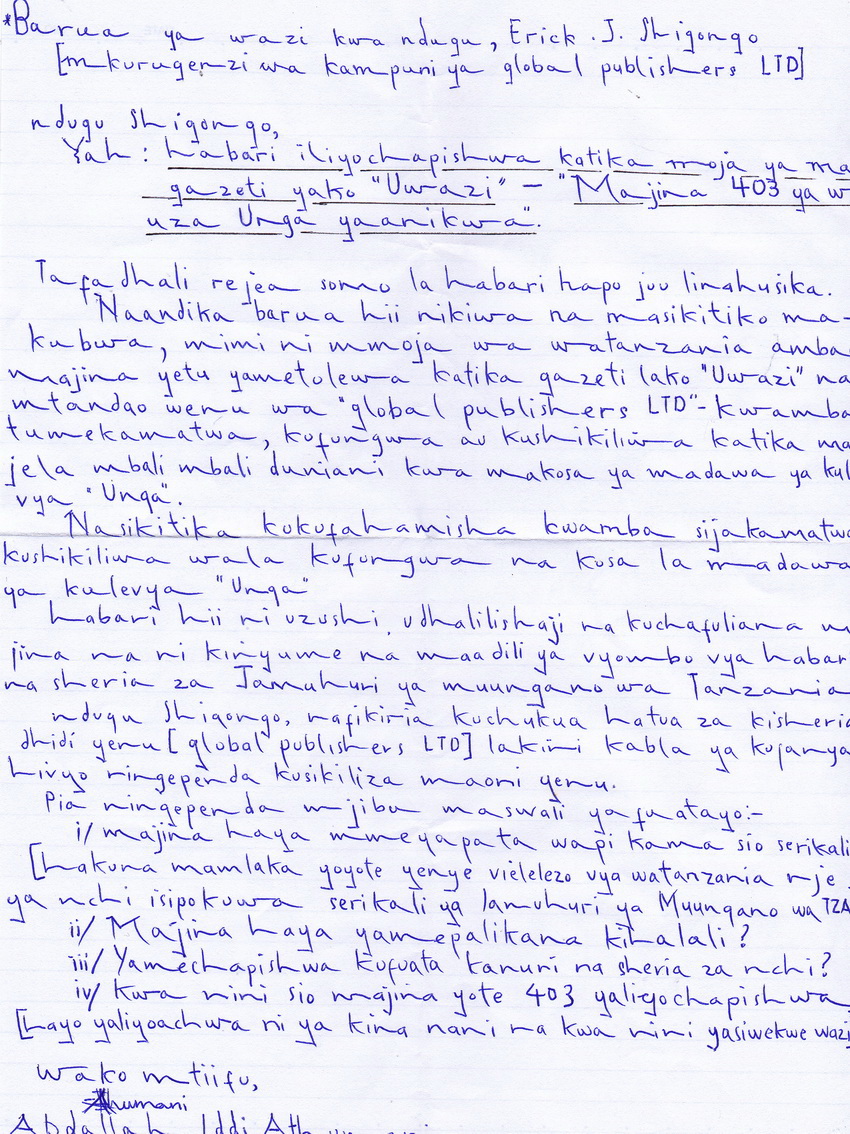 *Barua ya wazi kwa ndugu, Erick .J. Shigongo
[mkurugenzi wa kampuni ya global publishers LTD]
ndugu Shigongo,
Yah : habari iliyochapishwa katika moja ya ma
gazeti yako "Uwazi" – "Majina 403 ya w
uza Unga yaanikwa".
Tafadhali rejea somo la habari hapo juu linahusika.
Naandika barua hii nikiwa na masikitiko ma-
kubwa, mimi ni mmoja wa watanzania amba
majina yetu yametolewa katika gazeti lako "Uwazi" na
mtandao wenu wa "global publishers LTD"- kwamba
tumekamatwa, kufungwa au kushikiliwa katika ma
jela mbali mbali duniani kwa makosa ya madawa ya kul
vya "Unga".
Nasikitika kukufahamisha kwamba sijakamatwa
kushikiliwa wala kufungwa na kosa la madawa
ya kulevya "Unga"
habari hii ni uzushi, udhalilishaji na kuchafuliana m
jina na ni kinyume na maadili ya vyombo vya habari
na sheria za Jamuhuri ya muungano wa Tanzania
ndugu Shigongo, nafikiria kuchukua hatua za kisheria
dhidi yenu [global publishers LTD] lakini kabla ya kufanya
hivyo ningependa kusikiliza maoni yenu.
Pia ningependa mjibu maswali yafuatayo:-
i/ majina haya mmeyapata wapi kama sio serikali
[hakuna mamlaka yoyote yenye vielelezo vya watanzania nje
ya nchi isipokuwa serikali ya Jamuhuri ya Muungano wa TZA
ii/ Majina haya yamepalikana kihalali?
iii/ Yamechapishwa kufuata kanuni na sheria za nchi?
iv/ Kwa nini sio majina yote 403 yaliyochapishwa
[hayo yaliyoachwa ni ya kina nani na kwa nini yasiwekwe wazi
Wako mtiifu,
Athumani
Abdallah Iddi